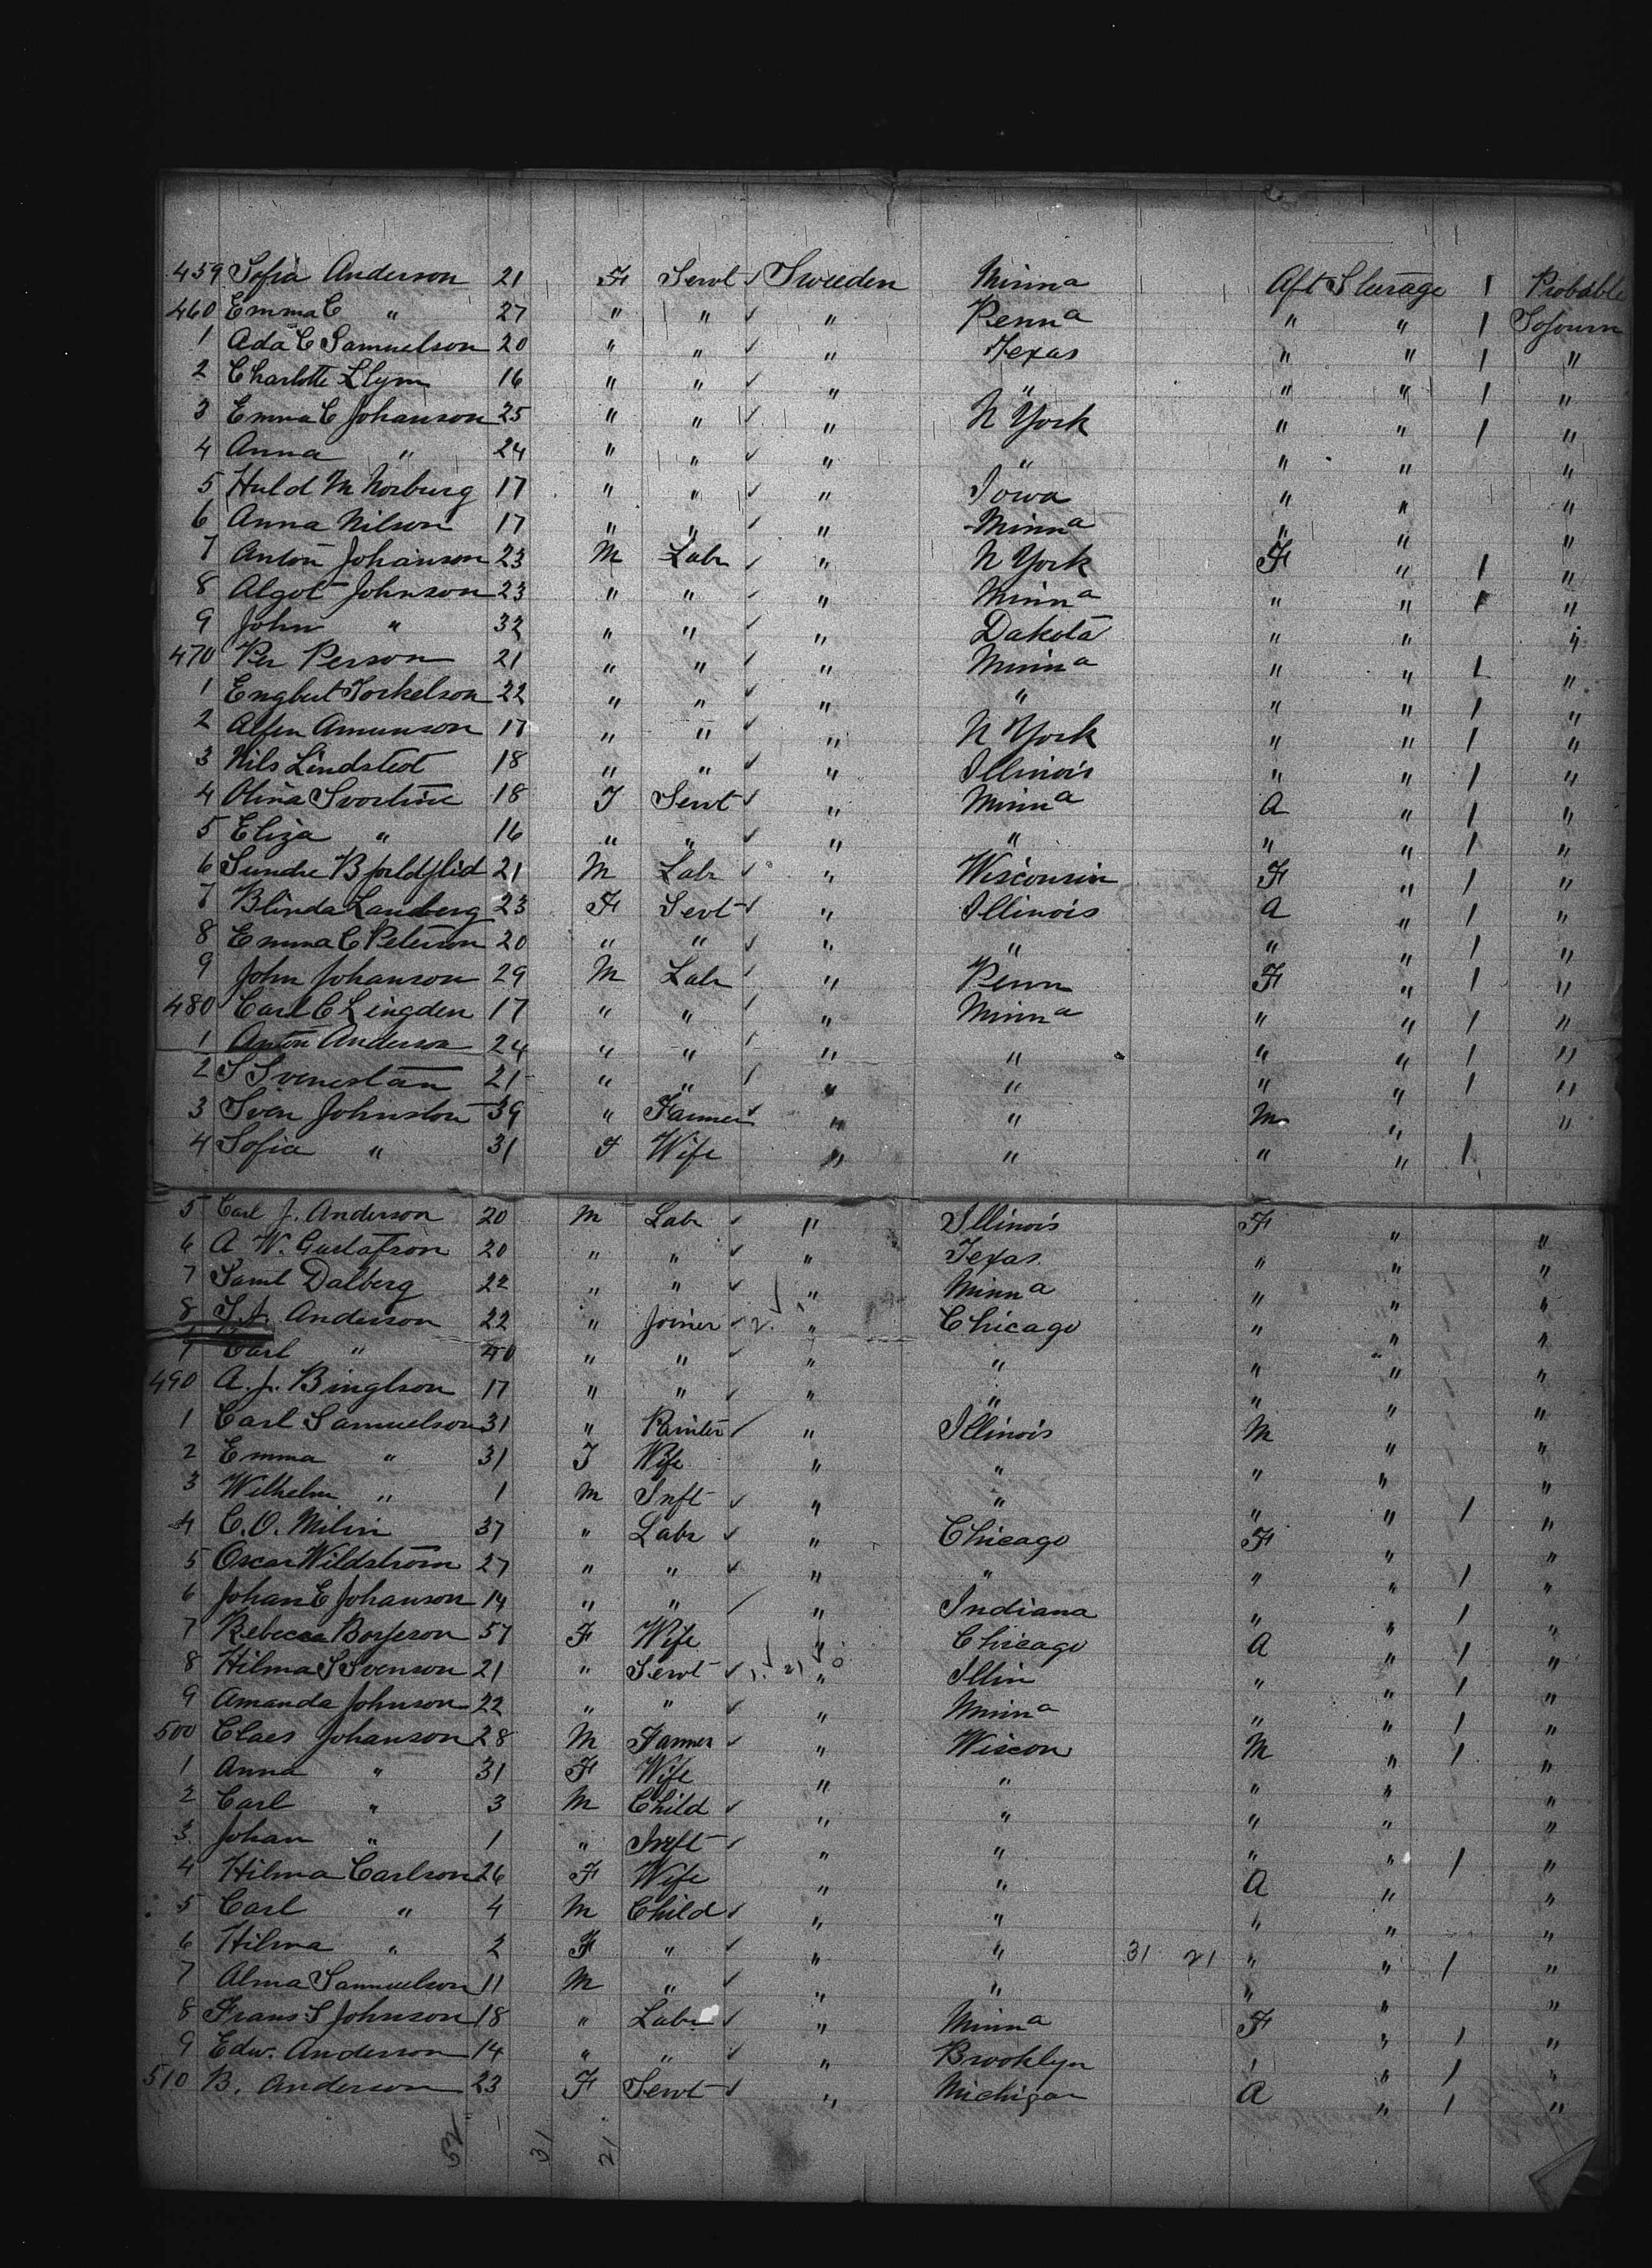 459 Sofia Anderson 21 F Servt ✓ Sweeden Minna Aft Steerage 1 Probable
460 Emma C " 27 " " ✓ " Penna " " 1 Sojourn
1 Ada C Samuelson 20 " " ✓ " Texas " " 1 "
2 Charlotte Llym 16 " " ✓ " " " " 1 "
3 Emma C Johanson 25 " " ✓ " N York " " 1 "
4 Anna " 24 " " ✓ " " " " "
5 Huld M Norburg 17 " " ✓ " Iowa " " "
6 Anna Nilson 17 " " ✓ " Minna " " "
7 Anton Johanson 23 M Labr ✓ " N York F " 1 "
8 Algot Johnson 23 " " ✓ " Minna " " 1 "
9 John " 32 " " ✓ " Dakota " " "
470 Per Person 21 " " ✓ " Minna " " 1 "
1 Engbut Torkelson 22 " " ✓ " " " " 1 "
2 Alfen Amunson 17 " " ✓ " N York " " 1 "
3 Nils Lindstedt 18 " " ✓ " Illinois " " 1 "
4 Olina 18 F Servt ✓ " Minna A " 1 "
5 Eliza " 16 " " ✓ " " " " 1 "
6 Sundre 21 M Labr ✓ " Wisconsin F " 1 "
7 Blinda Landberg 23 F Sevt ✓ " Illinois A " 1 "
8 Emma C Peterson 20 " " ✓ " " " " 1 "
9 John Johanson 29 M Labr ✓ " Penn F " 1 "
480 Carl C Lingden 17 " " ✓ " Minna " " 1 "
1 Anton Anderson 24 " " ✓ " " " " 1 "
2 S Svenestan 21 " " ✓ " " " " 1 "
3 Sven Johnston 39 " Farmer ✓ " " M " "
4 Sofia " 31 F Wife " " " " 1
5 Carl J. Anderson 20 M Labr ✓ " Illinois F " "
6 A W. Gustafson 20 " " ✓ " Texas " " "
7 Saml Dalberg 22 " " ✓ " Minna " " "
8 Anderson 22 " Joiner ✓ 2 " Chicago " " "
Carl " 40 " " ✓ " " " " "
490 A. J. Binglson 17 " " ✓ " " " " "
1 Carl Samuelson 31 " Painter ✓ " Illinois M " "
2 Emma " 31 F Wife " " " " "
3 Wilhelm " 1 M Inft ✓ " " " " 1 "
4 C. O. Milin 37 " Labr ✓ " Chicago F " "
5 Oscar Wildstrom 27 " " ✓ " " " " 1 "
6 Johan E Johanson 14 " " ✓ " Indiana " " 1 "
7 Rebecca Borjeson 57 F Wife " Chicago A " 1 "
8 Hilma S Svenson 21 " Servt ✓ 1. 21 0 " Illin " " 1 "
9 Amanda Johnson 22 " " ✓ " Minna " " 1 "
500 Claes Johanson 28 M Farmer ✓ " Wiscon M " 1 "
1 Anna " 31 F Wife " " " " "
2 Carl " 3 M Child ✓ " " " " "
3 Johan " 1 " Inft ✓ " " " " 1 "
4 Hilma Carlson 26 F Wife " " A " "
5 Carl " 4 M Child ✓ " " " " "
6 Hilma " 2 F " ✓ " " 31 21 " " 1 "
7 Alma Samuelson 11 M " ✓ " " " " "
8 Frans S Johnson 18 " Labr ✓ " Minna F " 1 "
9 Edw. Anderson 14 " " ✓ " Brooklyn " " 1 "
510 B. Anderson 23 F Servt ✓ " Michigan A " 1 "
52 31 21